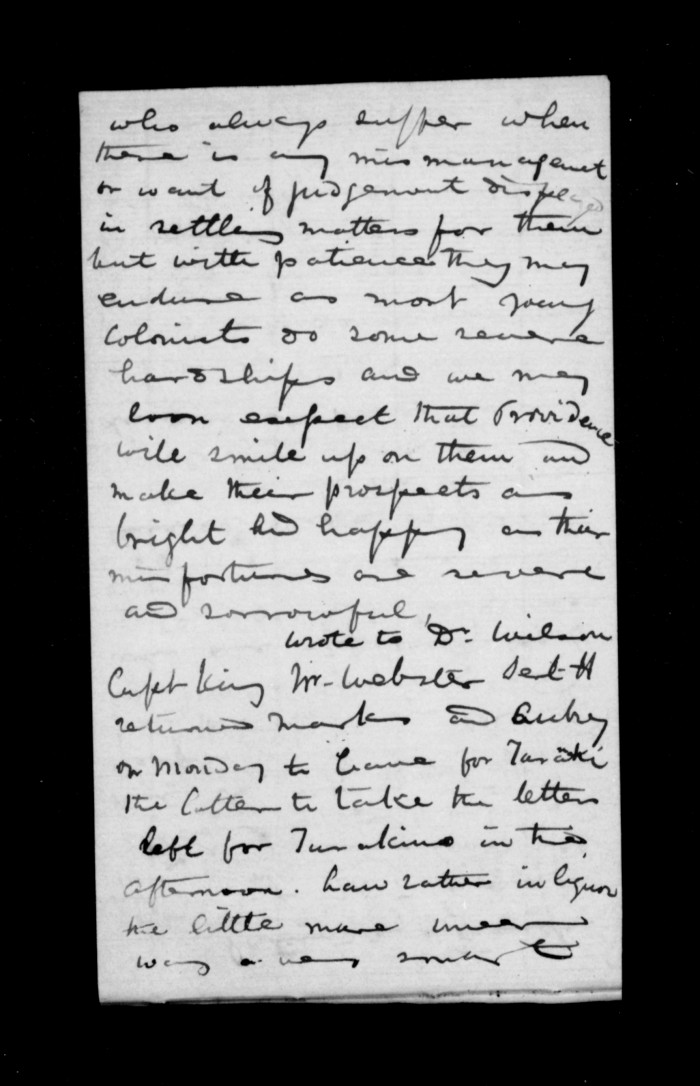 who always suffer when
there is any mismanagemt
or want of judgement displayed
in settling matters for them
but with patience they may
endure as most young
Colonists do some severe
hardships and we may
soon expect that Providence
will smile up on them and
make their prospects as
bright and happy as their
misfortunes are severe
and sorrowful,
wrote to Dr. Wilson
Capt King Mr. Webster
returned marks and Aubrey
on Monday to leave for
the latter to take the letters
left for in the
afternoon. rather in liquor
the little mare
a very smart